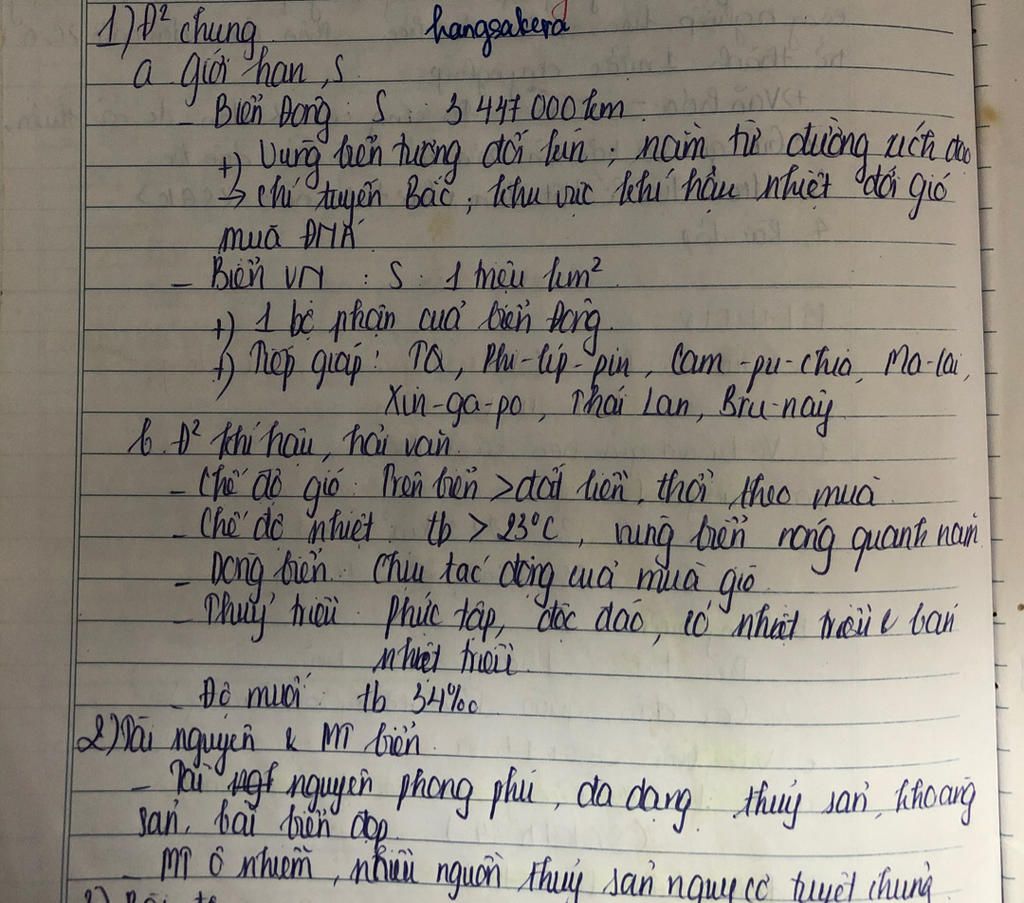 1) Đ² chung hangsakura
a Giới hạn, S
- Biển Đông : S : 3 447 000 km
+) Vùng biển tương đối kín ; nằm từ đường xích đạo
→ chí tuyến Bắc ; khu vực khí hậu nhiệt đới gió
mùa ĐNÁ
- Biển VN : S : 1 triệu km²
+) 1 bộ phận của biển Đông.
+) Tiếp giáp : TQ, Phi-líp-pin, Cam-pu-chia, Ma-lai,
Xin-ga-po, Thái Lan, Bru-nây
b. Đ² khí hậu, hải văn.
- Chế độ gió : Trên biển > đất liền, thổi theo mùa
- Chế độ nhiệt : tb > 23°C, vùng biển nóng quanh năm
- Dòng biển : Chịu tác động của mùa gió
- Thuỷ triều : phức tạp, độc đáo, có nhật triều & bán
nhật triều.
- Độ muối : tb 34‰
2) Tài nguyên & MT biển.
- Tài nguyên phong phú, đa dạng : thuỷ sản, khoáng
sản, bãi biển đẹp.
- MT ô nhiễm, nhiều nguồn thuỷ sản nguy cơ tuyệt chủng